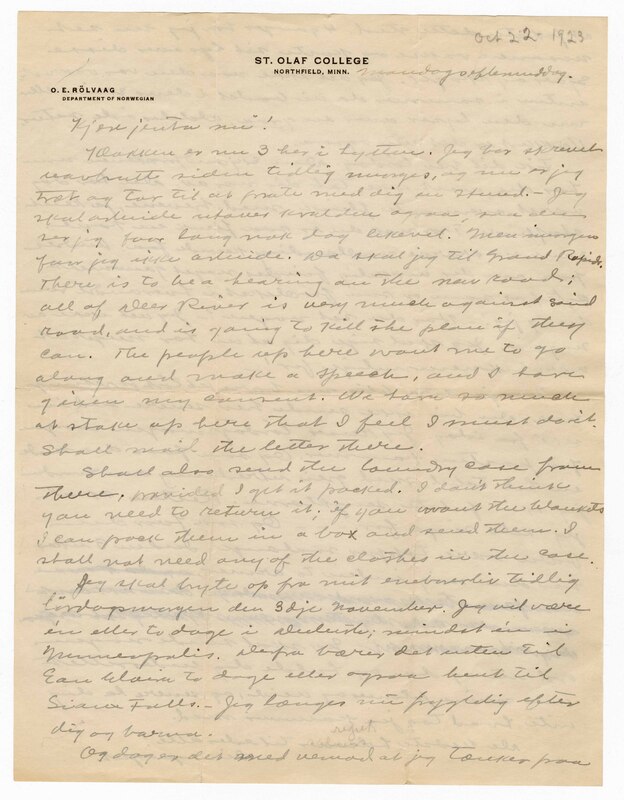 Oct 22 1923
ST. OLAF COLLEGE
NORTHFIELD, MINN.
Mandag eftermiddag.
O. E. RÖLVAAG
DEPARTMENT OF NORWEGIAN
Kjere jenta mi!
Klokken er nu 3 her i hytten. Jeg har skrevet
uavbrutt siden tidlig morges, og nu er jeg
træt og tar til at prate med dig en stund. – Jeg
skal arbeide utover kvælden ogsaa, saa den
jeg faar lang nok dag likevel. Men imorgen
faar jeg ikke arbeide. Da skal jeg til Grand Rapids.
There is to be a hearing on the new road;
all of Deer River is very much against said
road, and is going to kill the plan if they
can. The people up here want me to go
along and make a speech, and I have
given my consent. We have so much
at stake up here that I feel I must do it.
Shall mail the letter there.
Shall also send the laundry case from
there, provided I get it packed. I don't think
you need to return it; if you want the blankets
I can pack them in a box and send them. I
shall not need any of the clothes in the case.
Jeg skal bryte op fra mit eneboerliv tidlig
lördagsmorgen den 3dje November. Jeg vil være
én eller to dage i Duluth; mindst én i
Minneapolis. Derfra bærer det enten til
Eau Claire to dage eller ogsaa bent til
Sioux Falls. – Jeg længes nu frygtelig efter
dig og barna.
Og dog er det med vemod at jeg tænker paa